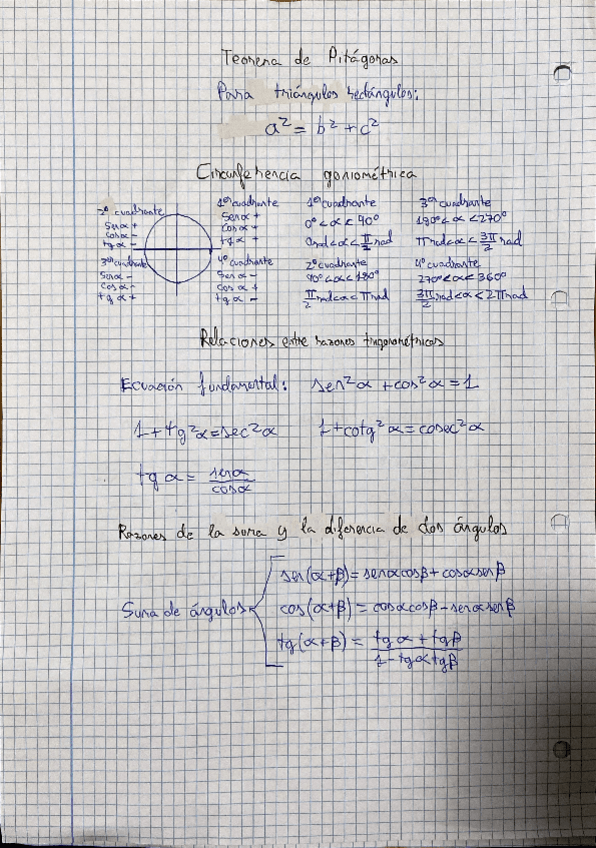 Teorema de Pitágoras
Para triángulos rectángulos:
a² = b² + c²
Circunferencia goniométrica
2º cuadrante
sen α +
cos α -
tg α -
3er cuadrante
sen α -
cos α -
tg α +
1er cuadrante
sen α +
cos α +
tg α +
4º cuadrante
sen α -
cos α +
tg α -
1er cuadrante
0º < α < 90º
0 rad < α < π/2 rad
2º cuadrante
90º < α < 180º
π/2 rad < α < π rad
3er cuadrante
180º < α < 270º
π rad < α < 3π/2 rad
4º cuadrante
270º < α < 360º
3π/2 rad < α < 2π rad
Relaciones entre razones trigonométricas
Ecuación fundamental: sen²α + cos²α = 1
1 + tg²α = sec²α 1 + cotg²α = cosec²α
tg α = senα/cosα
Razones de la suma y la diferencia de dos ángulos
sen(α+β) = senαcosβ + cosαsenβ
Suma de ángulos cos(α+β) = cosαcosβ - senαsenβ
tg(α+β) = tgα + tgβ/1 - tgαtgβ